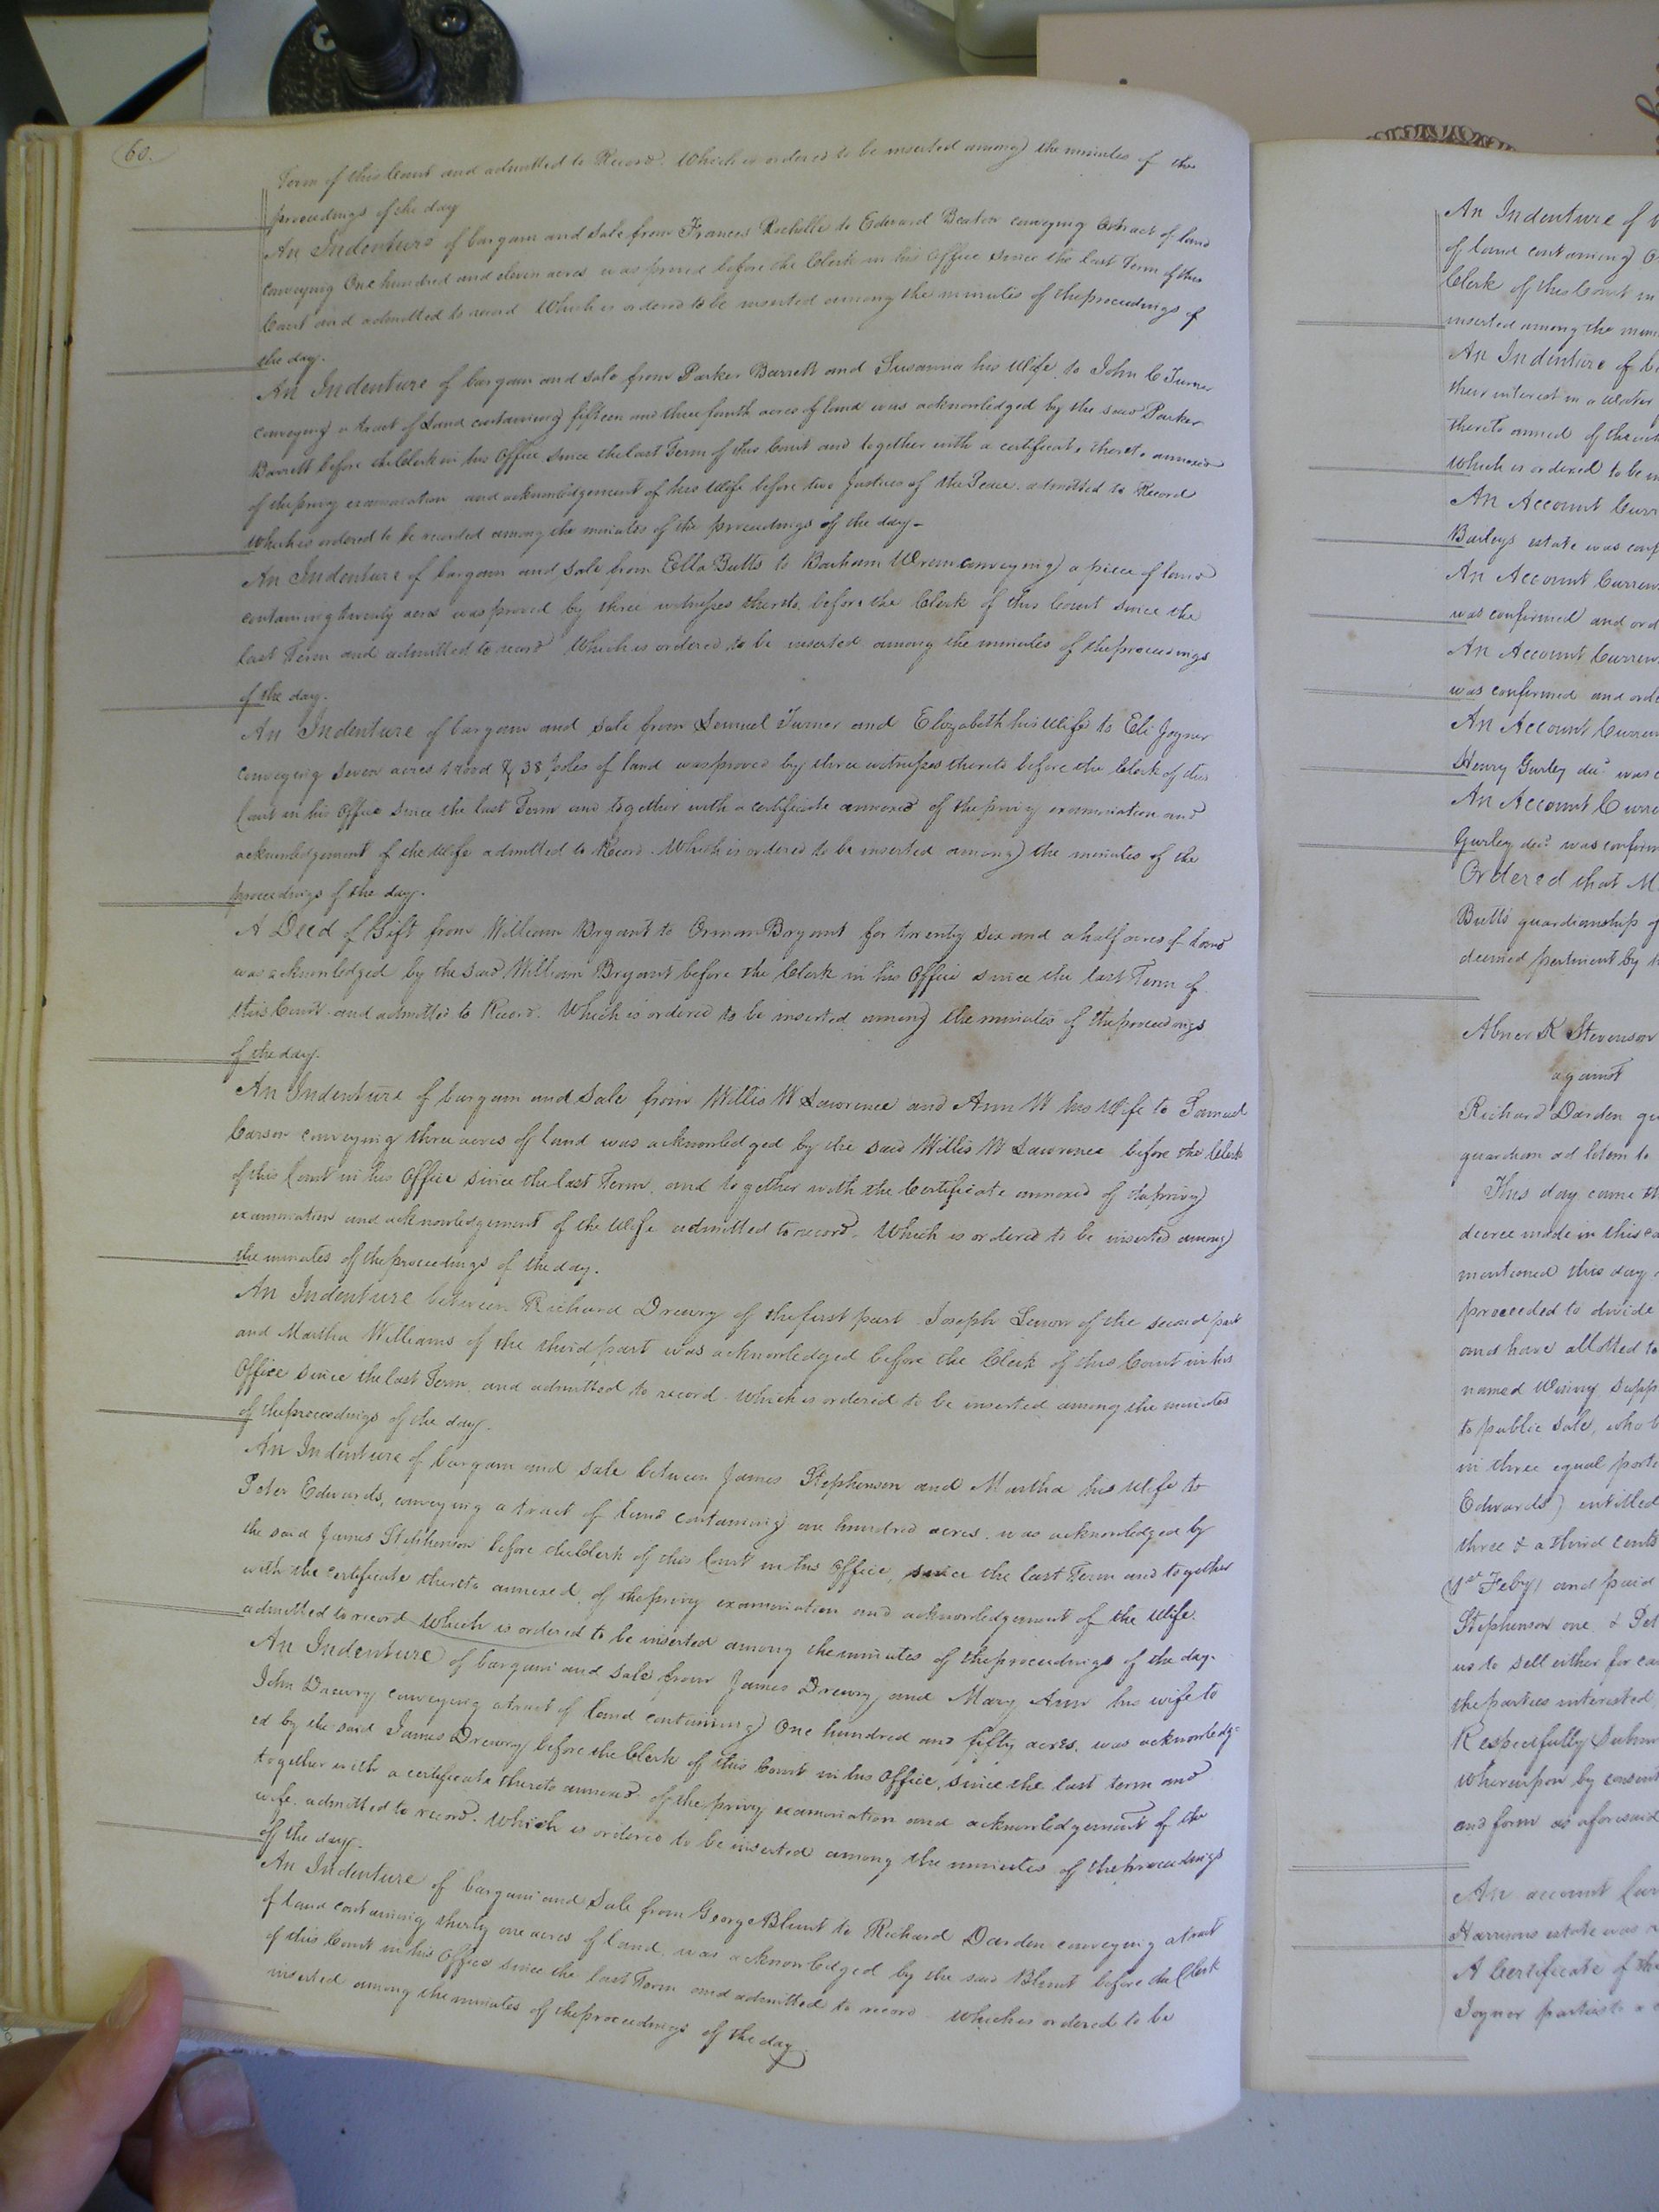 60.
Term of this Court and admitted to Record. Which is ordered to be inserted among the minutes of the
proceedings of the day
An Indenture of bargain and sale from Frances Rochelle to Edward Beaton conveying a tract of land
conveying One hundred and eleven acres was proved before the Clerk in his Office since the last Term of this
Court and admitted to record Which is ordered to be inserted among the minutes of the proceedings of
the day.
An Indenture of bargain and sale from Parker Barrett and Susanna his Wife to John C Turner
conveying a tract of Land containing fifteen and three fourth acres of land was acknowledged by the said Parker
Barrett before the Clerk in his Office since the last Term of this Court and together with a certificate thereto annexed
of the privy examination and acknowledgement of his Wife before two Justices of the Peace. admitted to Record
which is ordered to be recorded among the minutes of the proceedings of the day-
An Indenture of bargain and sale from Ella Butts to Barham Wrenn conveying a piece of land
containing twenty acres was proved by three witnesses thereto before the Clerk of this Court since the
last Term and admitted to record Which is ordered to be inserted among the minutes of the proceedings
of the day.
An Indenture of bargain and sale from Lemuel Turner and Elizabeth his Wife to Eli Joyner
conveying seven acres 1 rood & 38 poles of land was proved by three witnesses thereto before the Clerk of this
Court in his Office since the last Term and together with a certificate annexed of the privy examination and
acknowledgement of the Wife admitted to Record. Which is ordered to be inserted among the minutes of the
proceedings of the day.
A Deed of Gift from William Bryant to Orman Bryant for twenty six and a half acres of land
was acknowledged by the said William Bryant before the Clerk in his Office since the last Term of
this Court and admitted to Record. Which is ordered to be inserted among the minutes of the proceedings
of the day.
An Indenture of bargain and sale from Willis W Lawrence and Ann W his Wife to Samuel
Carson conveying three acres of land was acknowledged by the said Willis W Lawrence before the Clerk
of this Court in his Office since the last Term, and together with the Certificate annexed of the privy
examination and acknowledgement of the Wife admitted to record. Which is ordered to be inserted among
the minutes of the proceedings of the day.
An Indenture between Richard Drewry of the first part Joseph Lenow of the second part
and Martha Williams of the third part was acknowledged before the Clerk of this Court in his
Office since the last Term, and admitted to record. Which is ordered to be inserted among the minutes
of the proceedings of the day.
An Indenture of bargain and sale between James Stephenson and Martha his Wife to
Peter Edwards, conveying a tract of land containing one hundred acres, was acknowledged by
the said James Stephenson before the Clerk of this Court in his Office, since the last Term and together
with the certificate thereto annexed, of the privy examination and acknowledgement of the Wife.
admitted to record which is ordered to be inserted among the minutes of the proceedings of the day.
An Indenture of bargain and sale from James Drewry and Mary Ann his wife to
John Drewry conveying a tract of land containing One hundred and fifty acres, was acknowledg-
ed by the said James Drewry before the Clerk of this Court in his Office, since the last term and
together with a certificate thereto annexed of the privy examination and acknowledgement of the
wife. admitted to record. Which is ordered to be inserted among the minutes of the proceedings
of the day.
An Indenture of bargain and Sale from George Blunt to Richard Darden conveying a tract
of land containing thirty one acres of land. was acknowledged by the said Blunt before the Clerk
of this Court in his Office since the last Term and admitted to record which is ordered to be
inserted among the minutes of the proceedings of the day
An Indenture of
of land containing
Clerk of this Court in
inserted among the
An Indenture of
their interest in a Water
thereto annexed of the
Which is ordered to be
An Account
Barleys estate was
An Account Curren
was confirmed and
An Account Curren
was confirmed and
An Account Curren
Henry Gurley decd was
An Account
Gurley decd was
Ordered that
Butts guardianship of
deemed pertinent by
Abner K Stevenson
against
Richard Darden
guardian ad litem to
This day came
decree made in this
mentioned this day
proceeded to divide
and have allotted to
named Winny,
to public sale, who
in three equal
Edwards) entitled
three & a third cents
1st Feby) and paid
Stephenson one &
us to sell either for
the parties interested
Respectfully
whereupon by consent
and form as aforesaid
An account
Harrisons estate was
A Certificate of
Joyner parties to a